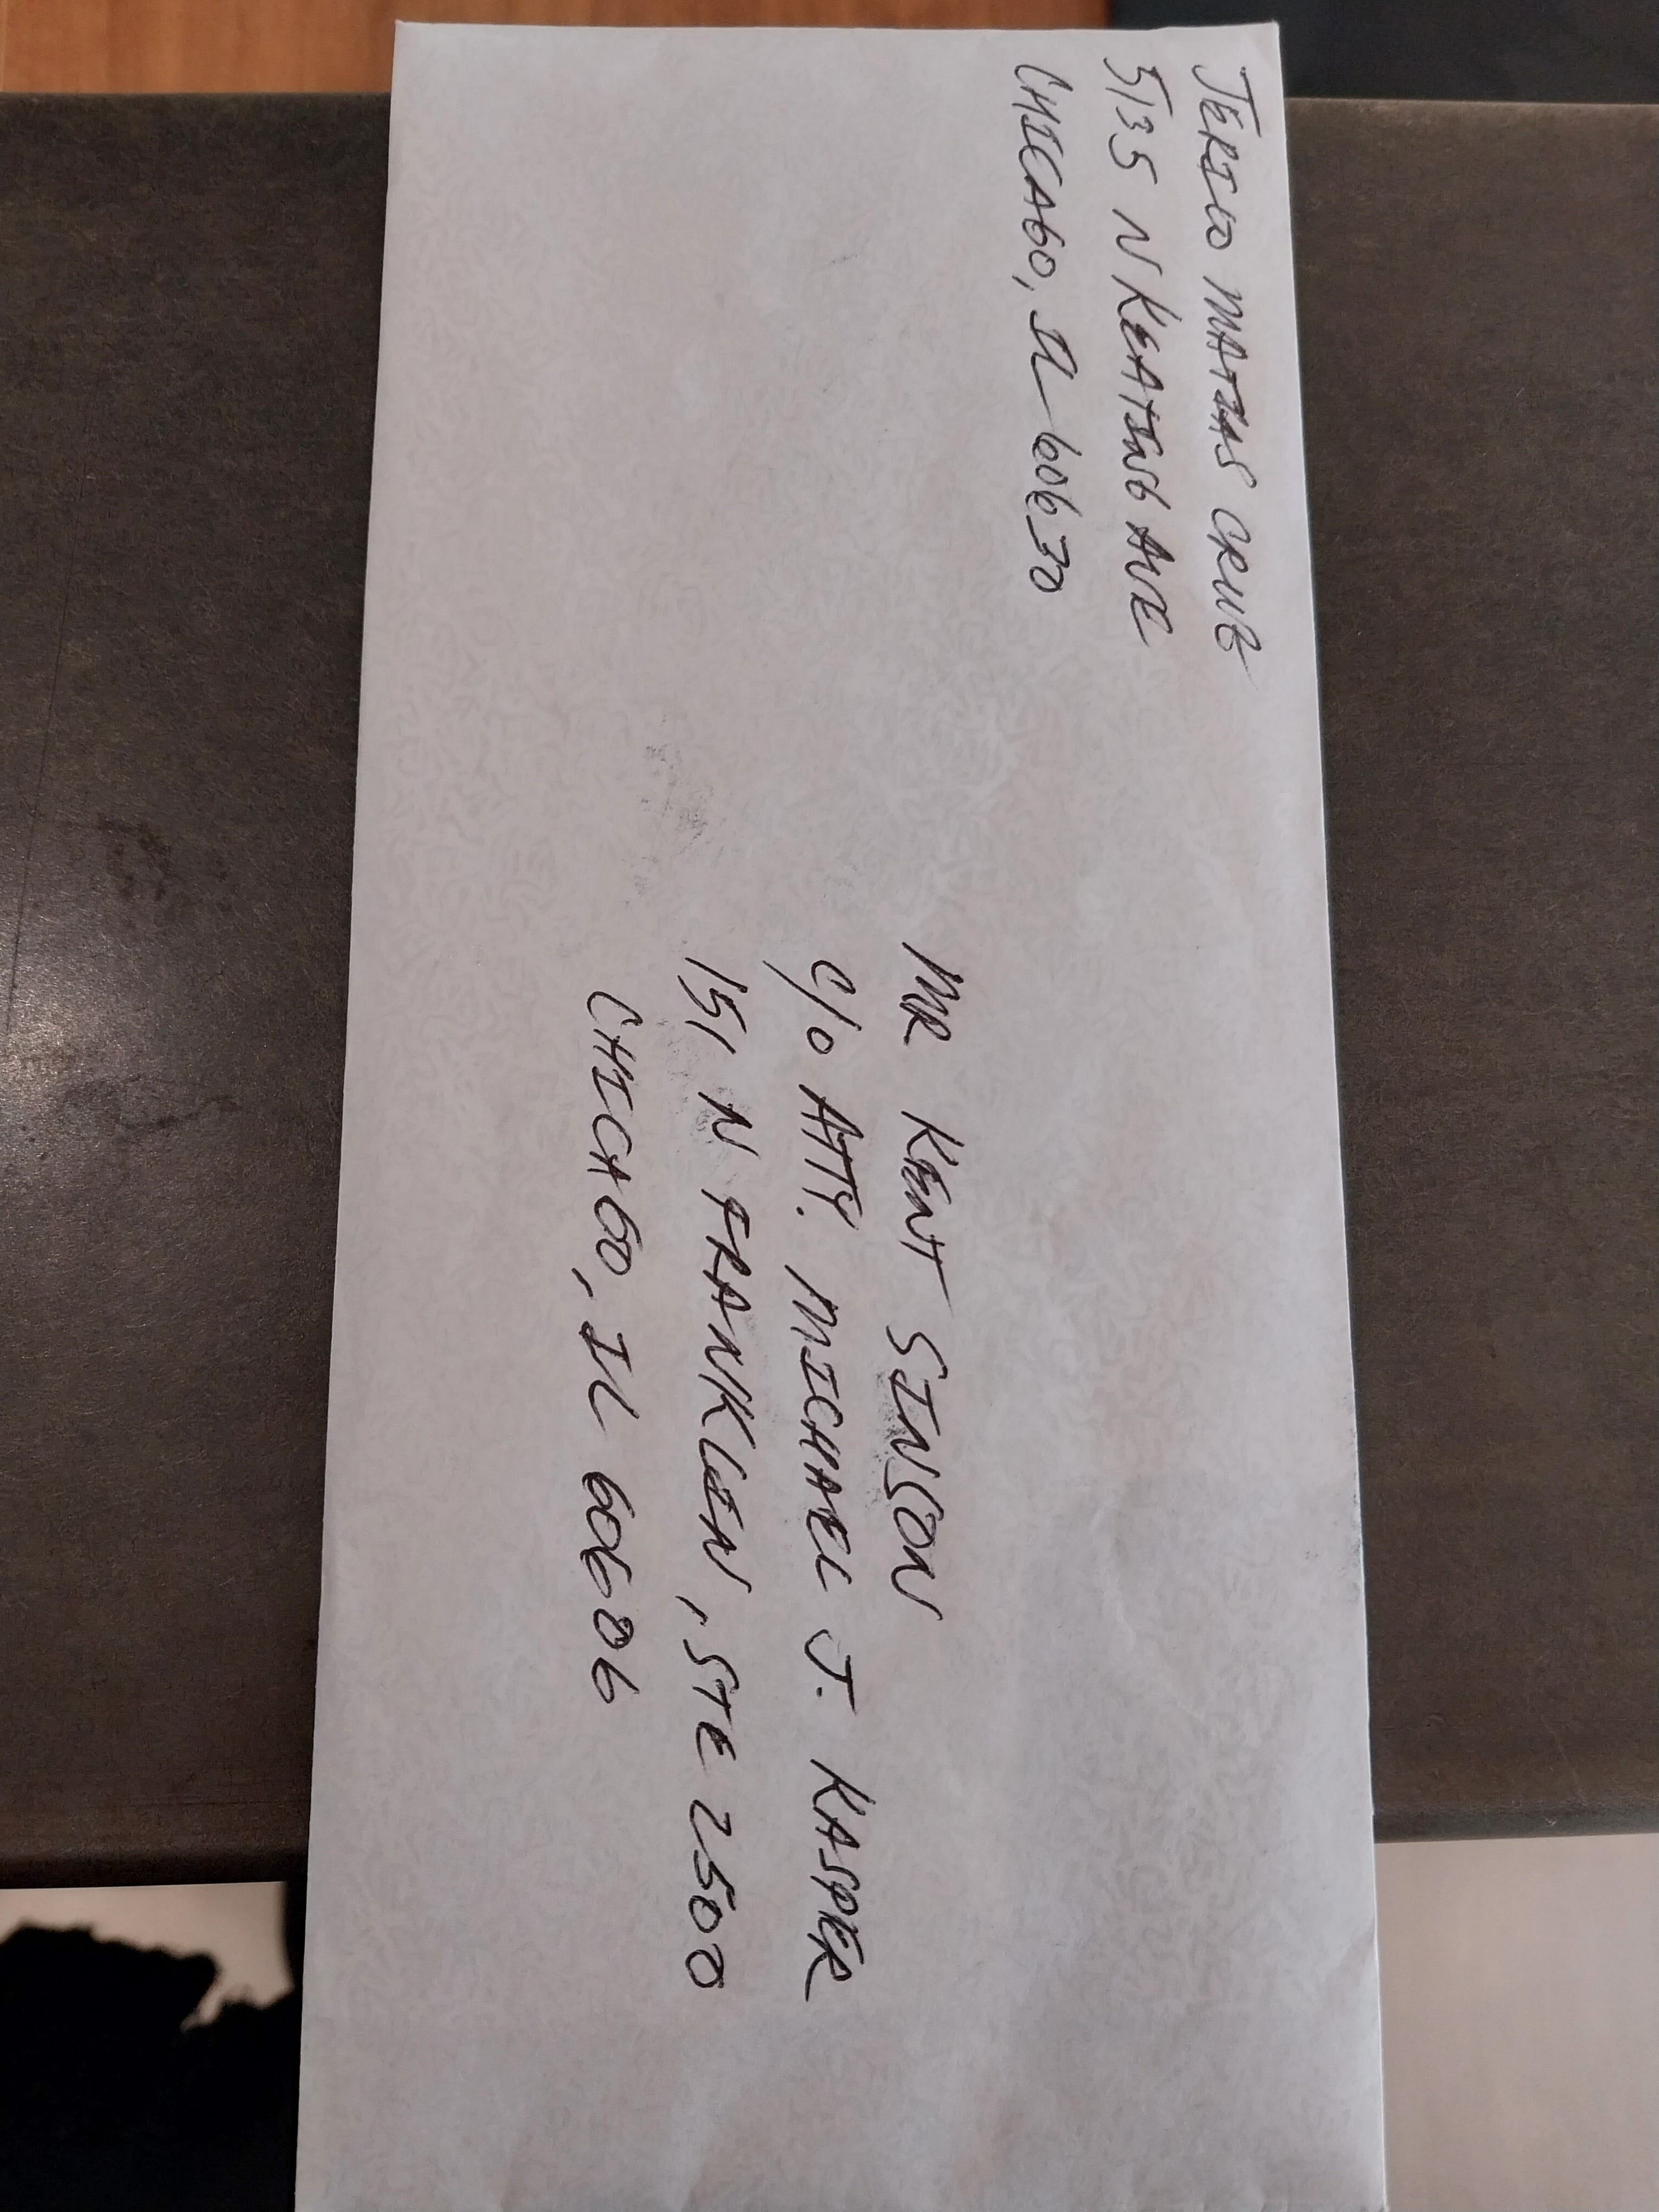 JERICO MATIAS CRUZ
5135 N KEATING AVE
CHICAGO, IL 60630
MR KENT SINSON
C/O ATTY. MICHAEL J. KASPER
151 N FRANKLIN, STE 2500
CHICAGO, IL 60606